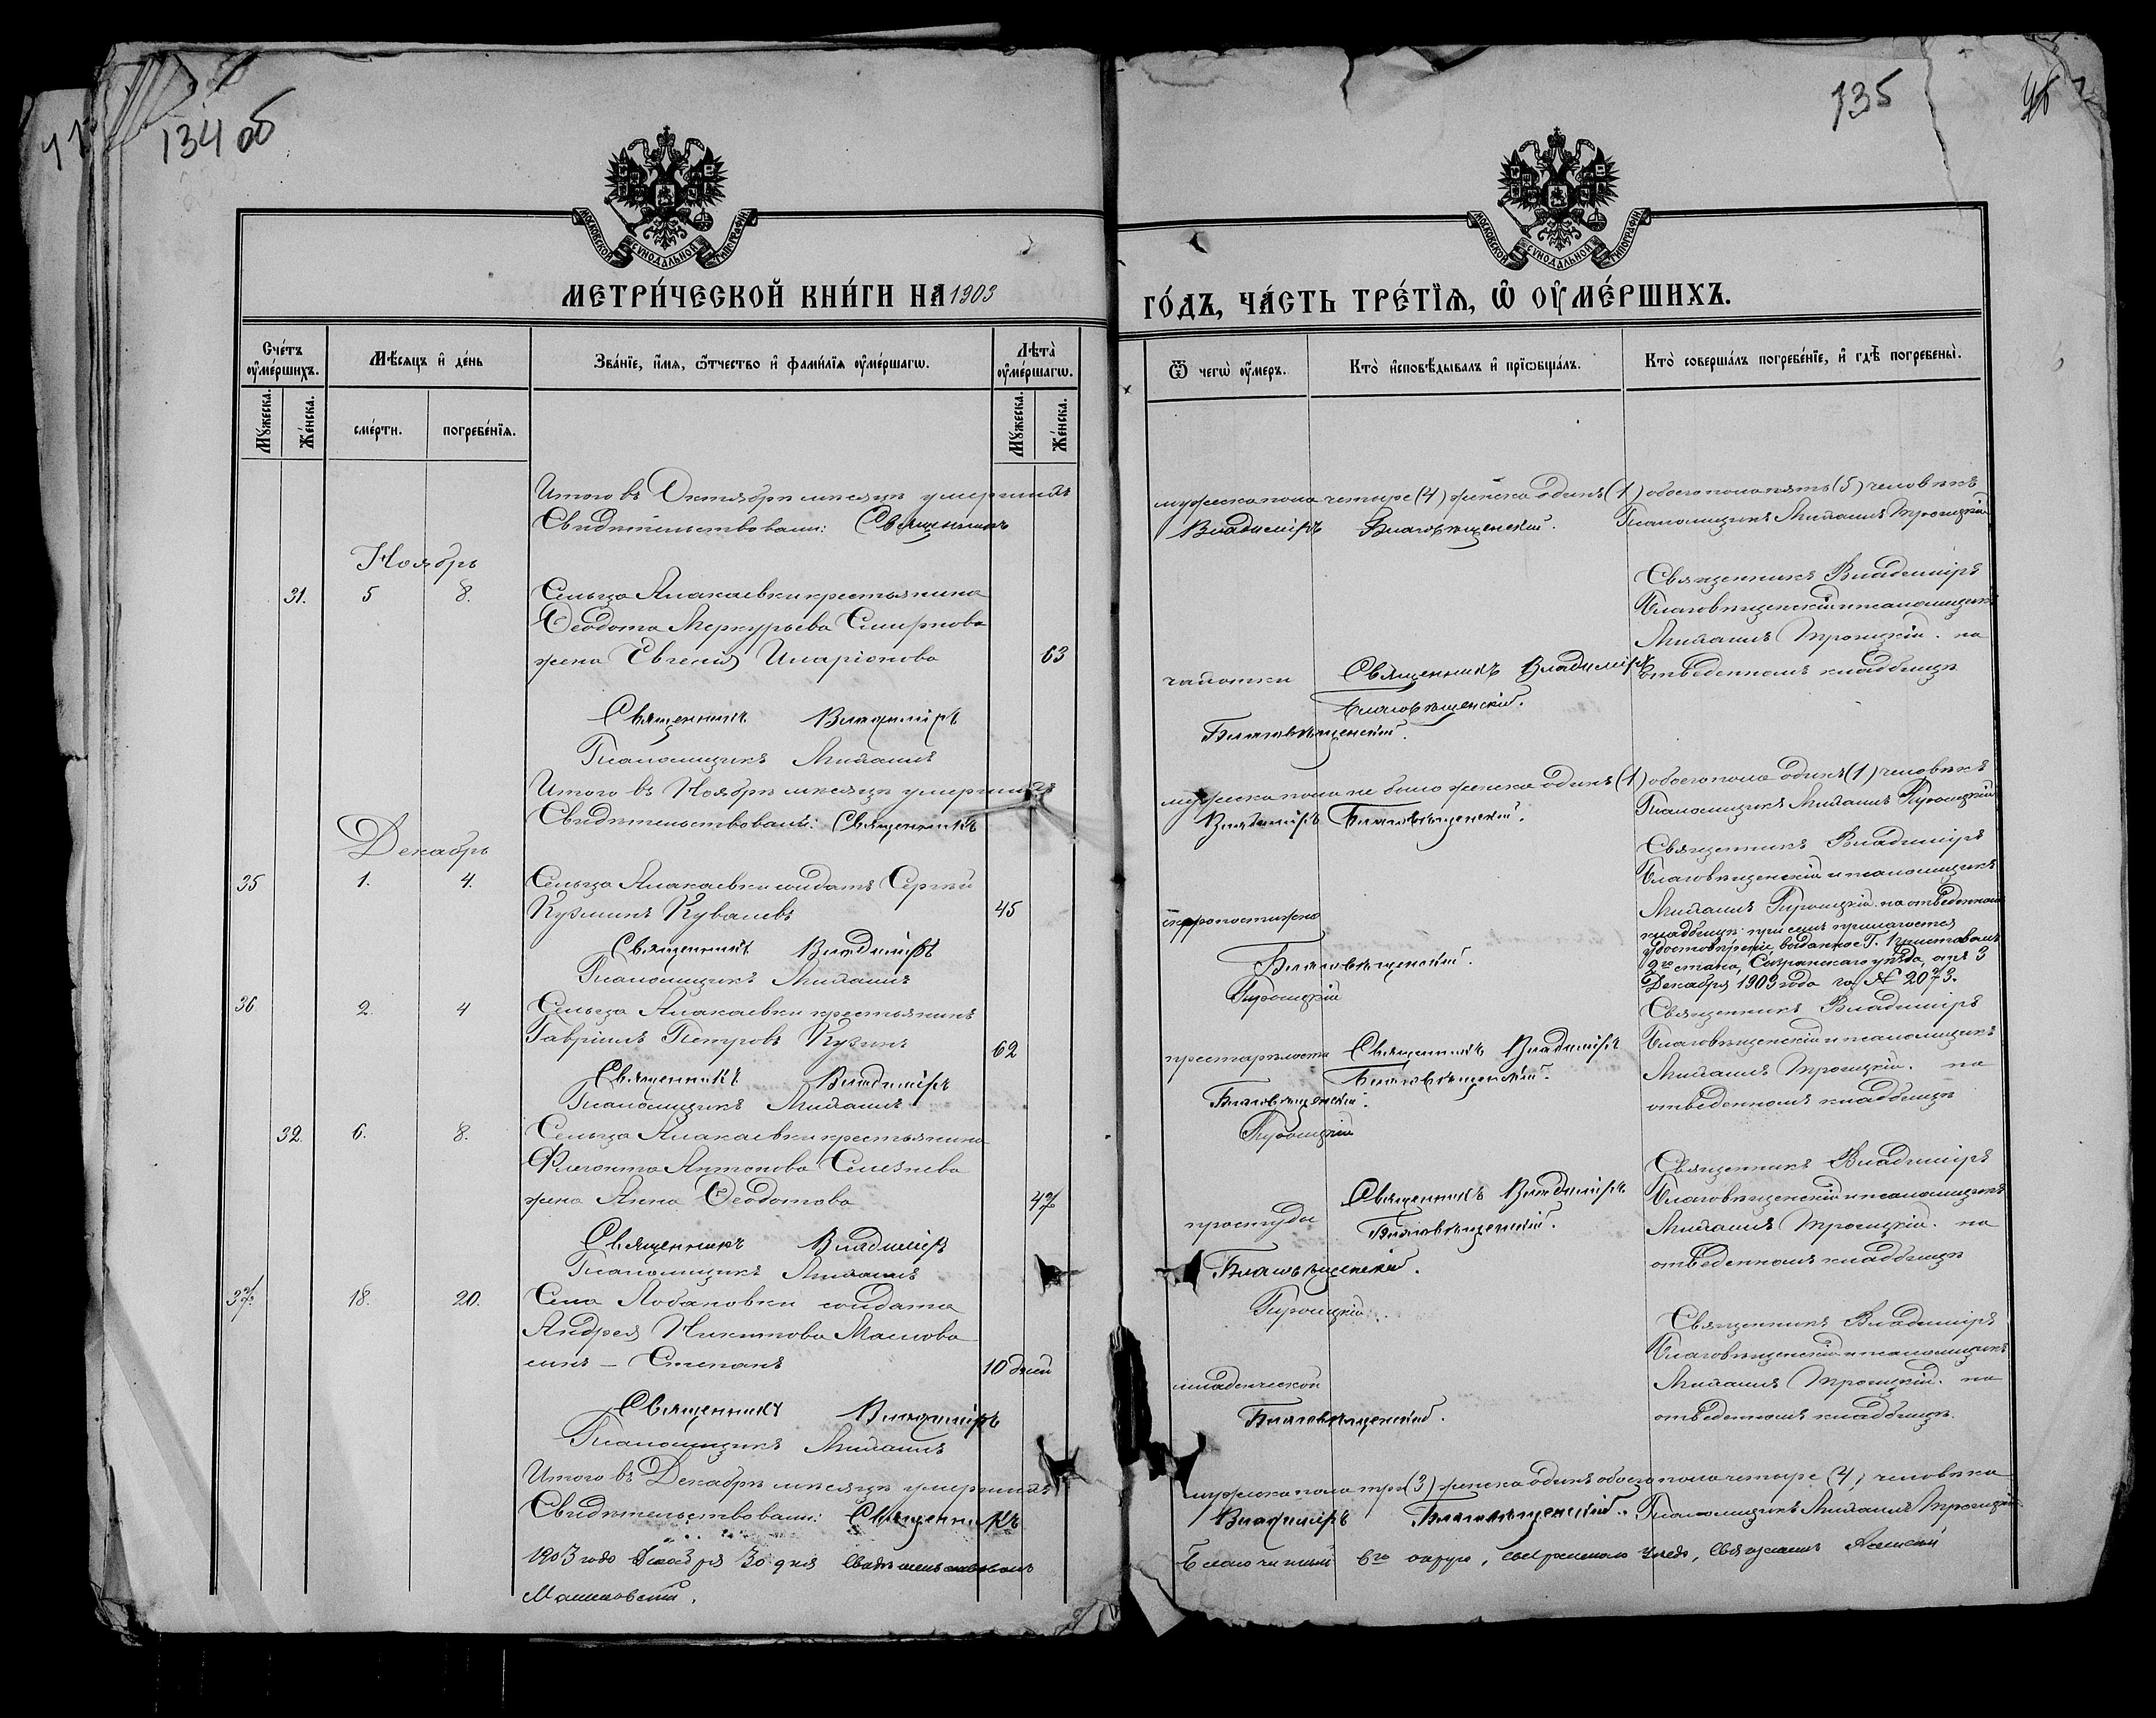 134 об
135
МОСКОВСКОЙ СУНОДАЛЬНОЙ ТИПОГРАФІИ
МОСКОВСКОЙ СУНОДАЛЬНОЙ ТИПОГРАФІИ
МЕТРИ́ЧЕСКОЙ КНИ́ГИ НА 1903
ГО́ДЪ, ЧА́СТЬ ТРЕ́ТЇѦ, Ѽ ОУ҆МЕ́РШИХЪ.
Сче́тъ оу҆ме́ршихъ.
Мѣ́сяцъ и҆ де́нь
Зва́нїе, и҆́мѧ, ѻ҆́тчество и҆ фами́лїѧ оу҆ме́ршагѡ.
Лѣта̀ оу҆ме́ршагѡ.
Ѿ чегѡ̀ оу҆́меръ.
Кто̀ и҆сповѣ́дывалъ и҆ прїѡбща́лъ.
Кто̀ соверша́лъ погребе́нїе, и҆ гдѣ̀ погребены̀.
Мꙋ́жеска.
Же́нска.
сме́рти.
погребе́нїѧ.
Мꙋ́жеска.
Же́нска.
Итого въ Октябрѣ мѣсяцѣ умершихъ
мужеска пола четыре (4) женска одинъ (1) обоего пола пять (5) человѣкъ
Свидѣтельствовали: Священникъ
Владиміръ Благовѣщенскій. Псаломщикъ Михаилъ Троицкій
Ноябрь
31. 5 8. Сельца Алакаевки крестьянина
Ѳеодота Меркурьева Смирнова
жена Евгенія Иларіонова 63
чахотки
Священникъ Владиміръ
Благовѣщенскій.
Священникъ Владиміръ
Благовѣщенскій и псаломщикъ
Михаилъ Троицкій. на
отведенномъ кладбищѣ
Священникъ Владиміръ
Благовѣщенскій.
Псаломщикъ Михаилъ
Итого въ Ноябрѣ мѣсяцѣ умершихъ
мужеска пола не было женска одинъ (1) обоего пола одинъ (1) человѣкъ
Свидѣтельствовали: Священникъ
Владиміръ Благовѣщенскій. Псаломщикъ Михаилъ Троицкій
Декабрь
35 1. 4. Сельца Алакаевки солдатъ Сергѣй
Кузминъ Кувалевъ 45
скоропостижно
Священникъ Владиміръ
Благовѣщенскій и псаломщикъ
Михаилъ Троицкій. на отведенномъ
кладбищѣ. при семъ прилагается
удостовѣреніе выданное Г. Приставомъ
2го стана, Сызранскаго уѣзда, отъ 3
Декабря 1903 года за № 2073.
Священникъ Владиміръ
Благовѣщенскій.
Псаломщикъ Михаилъ
Троицкій
36 2. 4 Сельца Алакаевки крестьянинъ
Гавріилъ Петровъ Кузинъ 62
престарѣлости
Священникъ Владиміръ
Благовѣщенскій.
Священникъ Владиміръ
Благовѣщенскій и псаломщикъ
Михаилъ Троицкій. на
отведенномъ кладбищѣ
Священникъ Владиміръ
Благовѣщенскій.
Псаломщикъ Михаилъ
Троицкій
32. 6. 8. Сельца Алакаевки крестьянина
Флегонта Антонова Селезнева
жена Анна Ѳеодотова 47
простуды
Священникъ Владиміръ
Благовѣщенскій.
Священникъ Владиміръ
Благовѣщенскій и псаломщикъ
Михаилъ Троицкій. на
отведенномъ кладбищѣ
Священникъ Владиміръ
Благовѣщенскій.
Псаломщикъ Михаилъ
Троицкій
37. 18. 20. Села Лобановки солдата
Андрея Никитова Маслова
сынъ – Степанъ 10 дней
младенческой
Священникъ Владиміръ
Благовѣщенскій и псаломщикъ
Михаилъ Троицкій. на
отведенномъ кладбищѣ.
Священникъ Владиміръ
Благовѣщенскій.
Псаломщикъ Михаилъ
Итого въ Декабрѣ мѣсяцѣ умершихъ
мужска пола три (3) женска одинъ обоего пола четыре (4) человѣка
Свидѣтельствовали: Священникъ
Владиміръ Благовѣщенскій. Псаломщикъ Михаилъ Троицкій
1903 года Декабря 30 дня свидѣтельствовалъ
Благочинный 6го округа, Сызранскаго уѣзда, священникъ